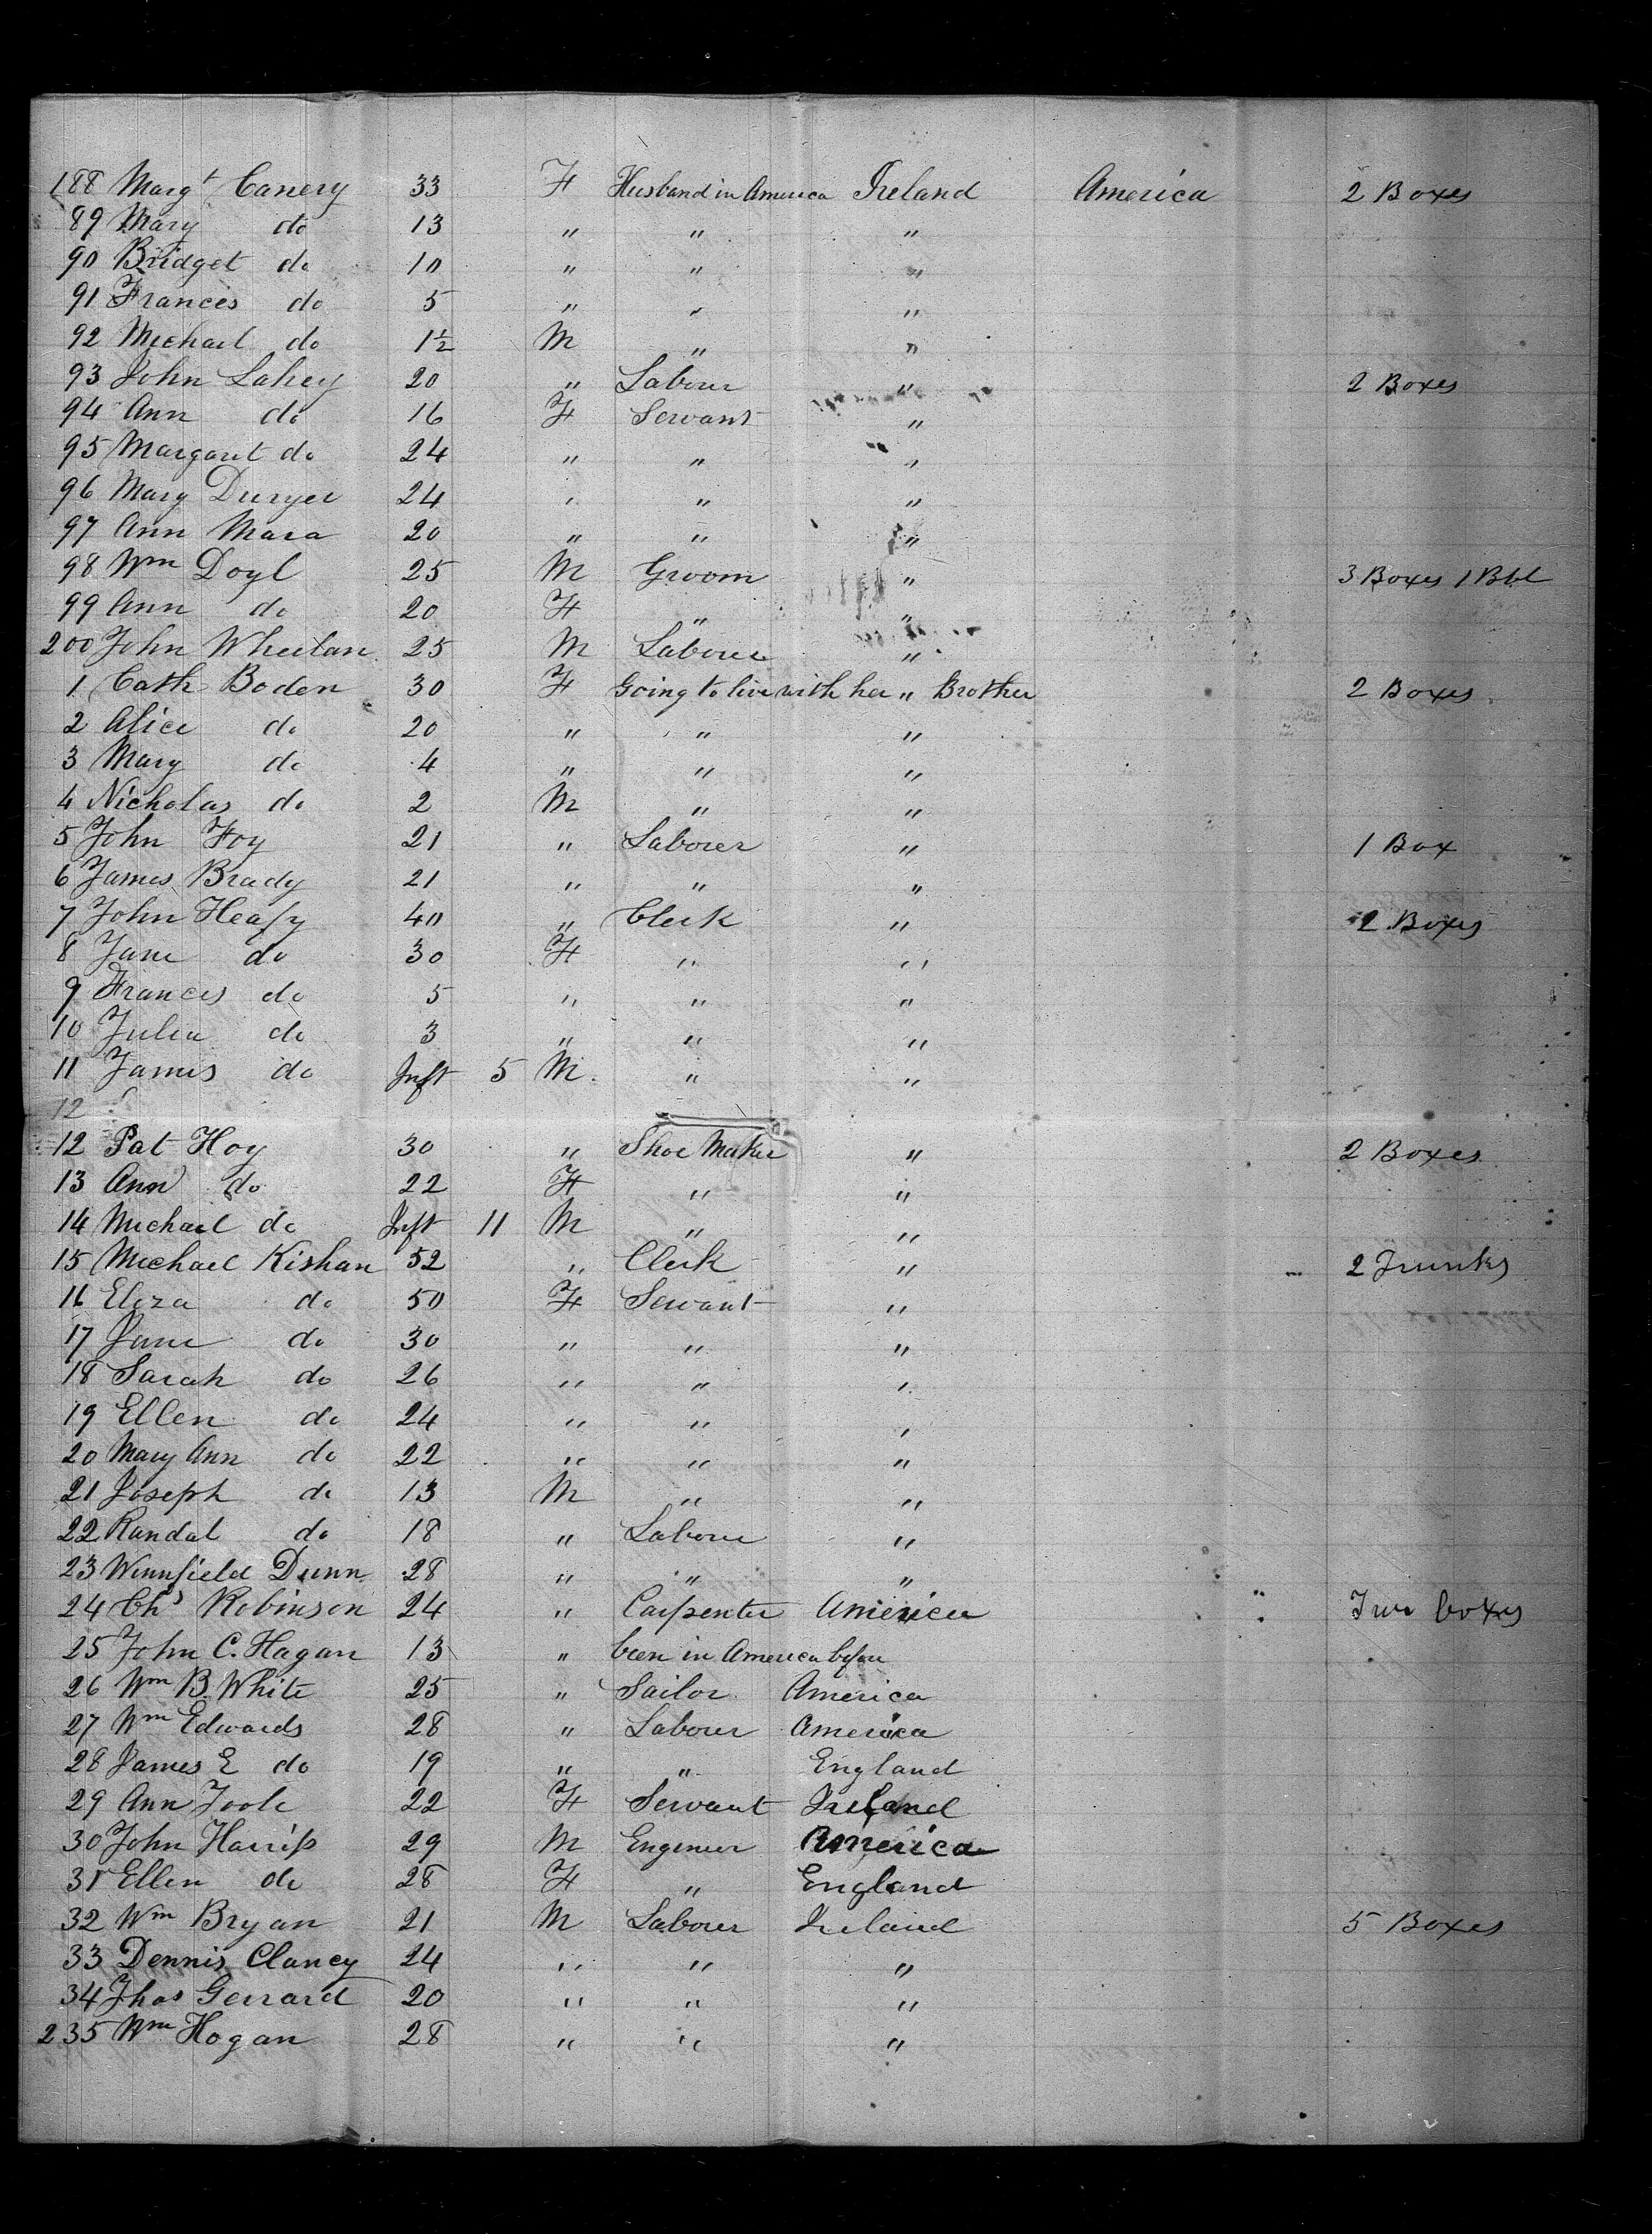 188 Margt Canery 33 F Husband in America Ireland America 2 Boxes
89 Mary do 13 " " "
90 Bridget do 10 " " "
91 Frances do 5 " " "
92 Michael do 1½ M " "
93 John Lahey 20 " Labour " 2 Boxes
94 Ann do 16 F Servant "
95 Margaret do 24 " " "
96 Mary Duryer 24 " " "
97 Ann Mara 20 " " "
98 Wm Doyl 25 M Groom " 3 Boxes 1 Bbl
99 Ann do 20 F " "
200 John Wheelan 25 M Labour "
1 Cath Boden 30 F Going to live with her " Brother 2 Boxes
2 Alice do 20 " " "
3 Mary do 4 " " "
4 Nicholas do 2 M " "
5 John Foy 21 " Laborer " 1 Box
6 James Brady 21 " " "
7 John Heafy 40 " Clerk " 2 Boxes
8 Jane do 30 F " "
9 Frances do 5 " " "
10 Julia do 3 " " "
11 James do Inft 5 M " "
12
12 Pat Hoy 30 " Shoe Maker " 2 Boxes
13 Ann do 22 F " "
14 Michael do Inft 11 M " "
15 Michael Kishan 52 " Clerk " 2 Trunks
16 Eliza do 50 F Servant "
17 Jane do 30 " " "
18 Sarah do 26 " " "
19 Ellen do 24 " " "
20 Mary Ann do 22 " " "
21 Joseph do 13 M " "
22 Randal do 18 " Labour "
23 Winnfield Dunn 28 " " "
24 Chs Robinson 24 " Carpenter America Two boxes
25 John C. Hagan 13 " been in America before
26 Wm B. White 25 " Sailor America
27 Wm Edwards 28 " Labourer America
28 James E do 19 " " England
29 Ann Toole 22 F Servant Ireland
30 John Harriss 29 M Engineer America
31 Ellen do 28 F " England
32 Wm Bryan 21 M Labourer Ireland 5 Boxes
33 Dennis Clancy 24 " " "
34 Thos Gerrard 20 " " "
235 Wm Hogan 28 " " "